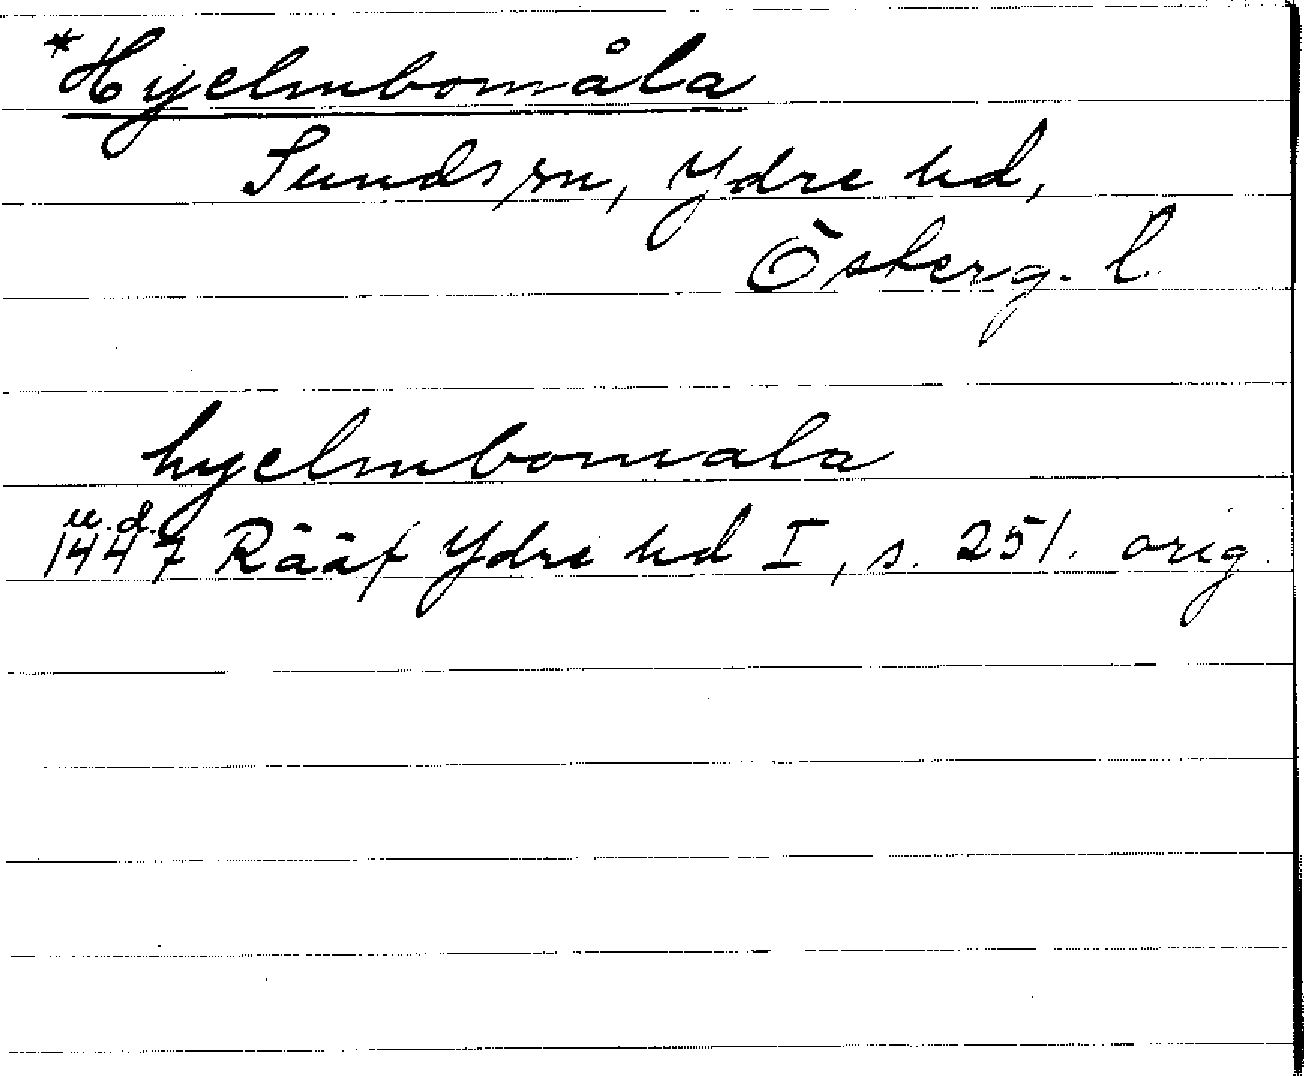 *Hyelmbomåla
Sunds sn, Ydre hd,
Österg. l.
hyelmbomala
u. d.
1447 Rääf Ydre hd I, s. 251. orig.